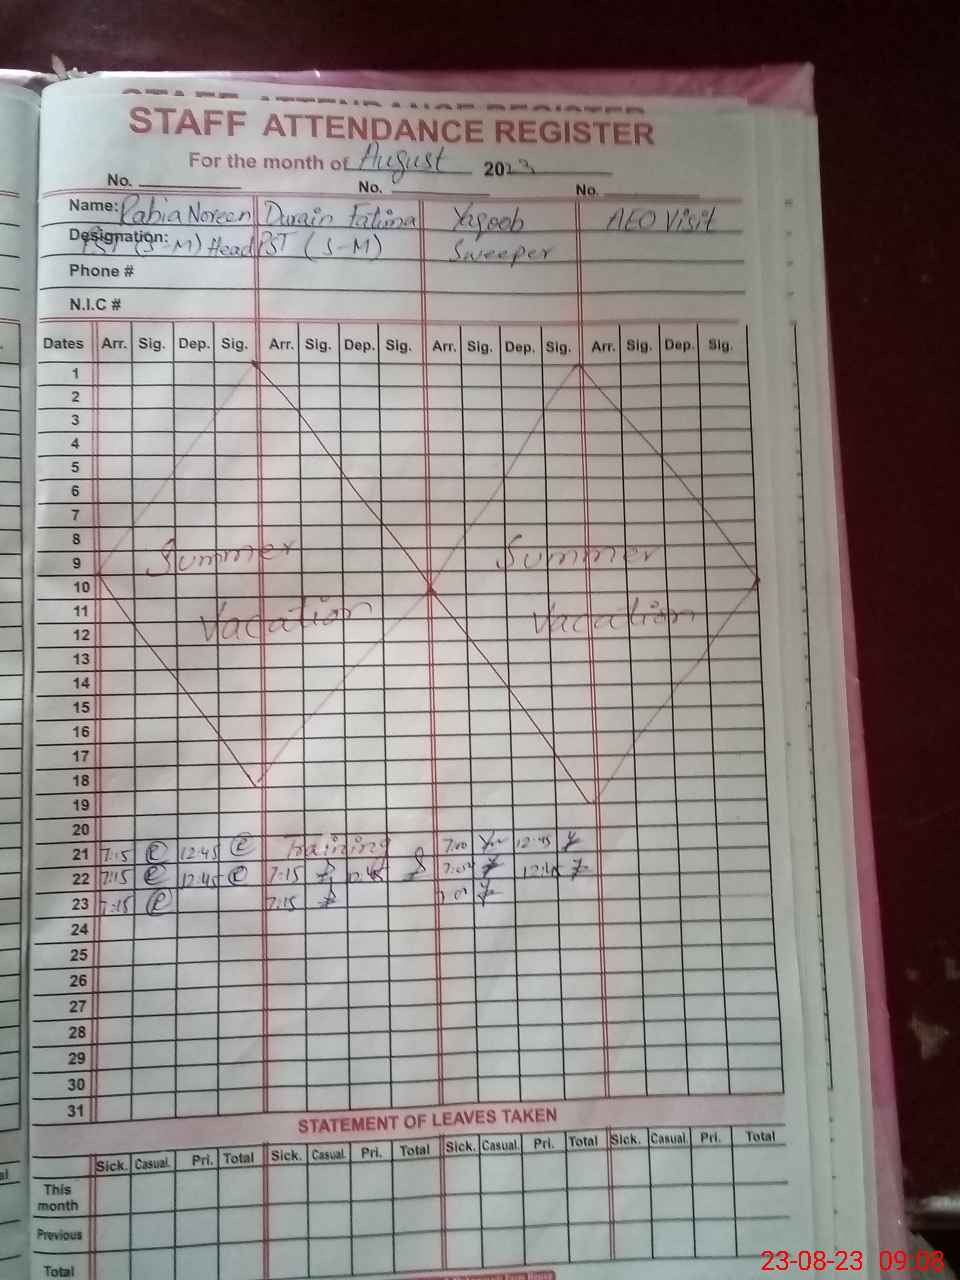 STAFF ATTENDANCE REGISTER
STAFF ATTENDANCE REGISTER
For the month of August 2023
No. No. No.
Name: Rabia Noreen Durain Fatima Yaqoob AEO Visit
Designation: PST (S-M) Head PST (S-M) Sweeper
Phone #
N.I.C #
Dates Arr. Sig. Dep. Sig. Arr. Sig. Dep. Sig. Arr. Sig. Dep. Sig. Arr. Sig. Dep. Sig.
1
2
3
4
5
6
7
8
9 Summer Summer
10
11 Vacation Vacation
12
13
14
15
16
17
18
19
20
21 7:15 12:45 Training 7:00 12:45
22 7:15 12:45 7:15 12:45 12:45
23 7:15 7:15
24
25
26
27
28
29
30
31
STATEMENT OF LEAVES TAKEN
Sick. Casual. Pri. Total Sick. Casual. Pri. Total Sick. Casual. Pri. Total Sick. Casual. Pri. Total
This month
Previous
Total
23-08-23 09:08